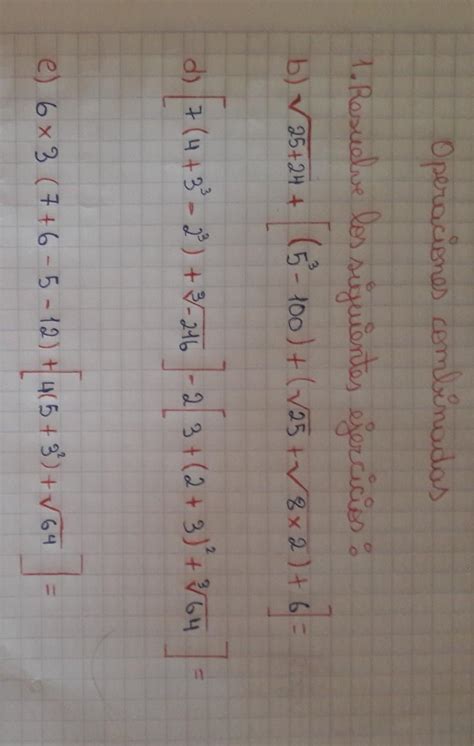 Operaciones combinadas
1. Resuelve los siguientes ejercicios:
b) √25+24 + [(5³ - 100) + (√25 + √8×2) + 6] =
d) [7 (4 + 3³ - 2³) + ³√-216] - 2[3 + (2 + 3)² + ³√64] =
e) 6 × 3 (7 + 6 - 5 - 12) + [4(5 + 3²) + √64] =